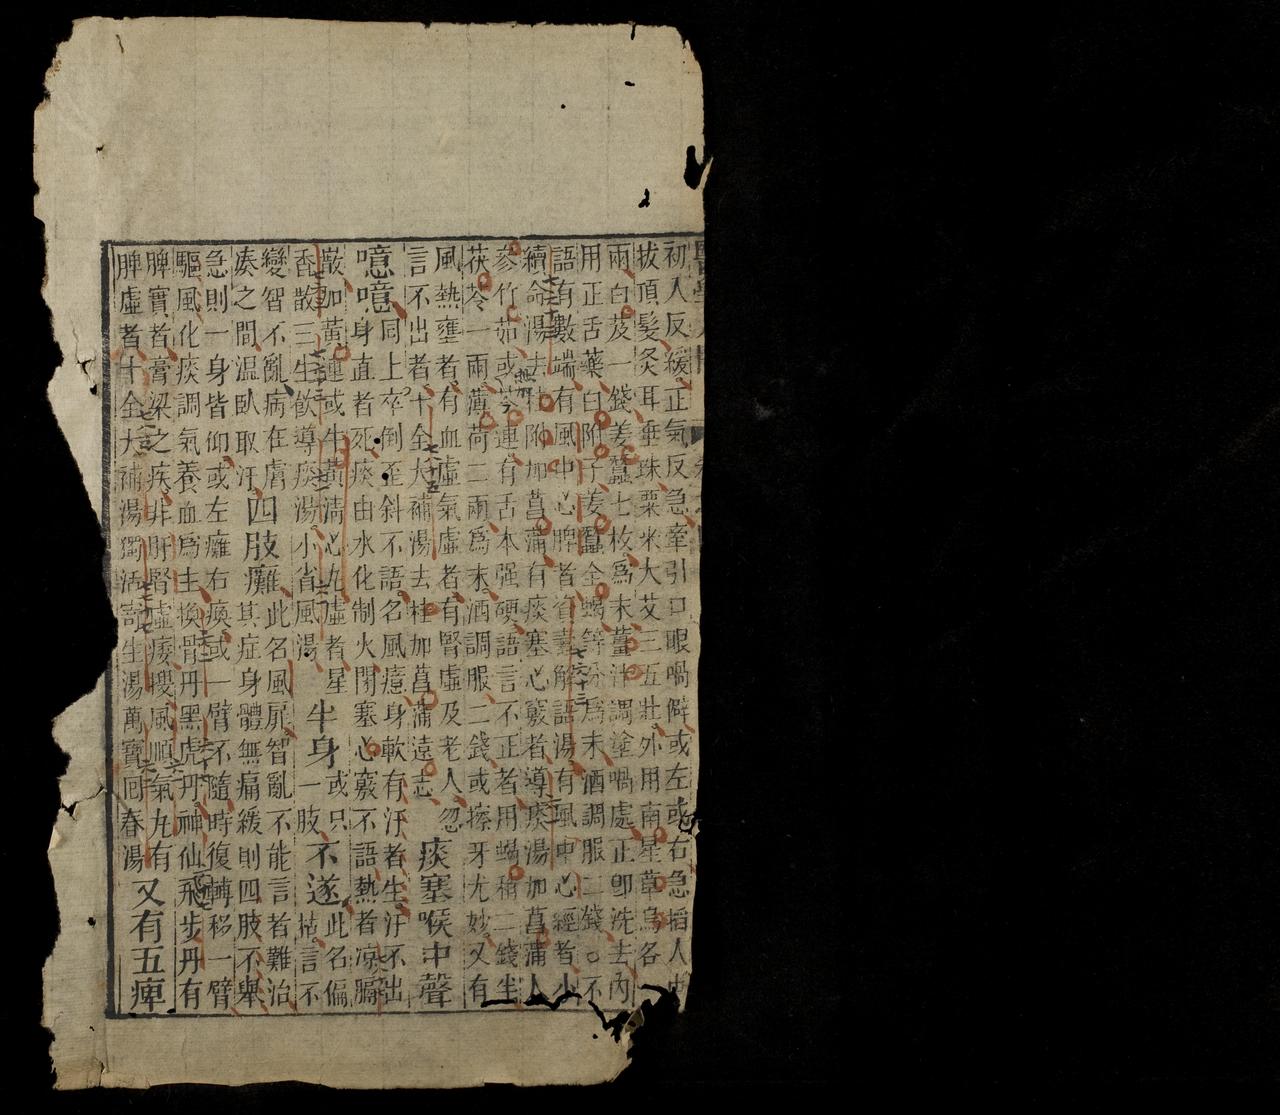 初人反緩正氣反急牽引口眼喎僻或左或右急掐人中
拔頂髮灸耳垂珠粟米大艾三五壯外用南星草烏各一
兩白芨一錢姜蠶七枚爲末薑汁調塗喎處正卽洗去內
用正舌藥白附子姜蠶全蝎等分爲末酒調服二錢不
語有數端有風中心脾者資壽解語湯有風中心經者小
續命湯去桂附加菖蒲有痰塞心竅者導痰湯加菖蒲人
參竹茹或芩連有舌本强硬語言不正者用蝎稍二錢半
茯苓一兩薄荷二兩爲末酒調服二錢或擦牙尤妙又有
風熱壅者有血虛氣虛者有腎虛及老人忽
言不出者十全大補湯去桂加菖蒲遠志
痰塞喉中聲
噫噫
同上卒倒歪斜不語名風癔身軟有汗者生汗不出
身直者死痰由水化制火閉塞心竅不語熱者凉膈
散加黃連或牛黃淸心丸虛者星
香散三生飮導痰湯小省風湯
半身
或只
一肢
不遂
此名偏
枯言不
變智不亂病在膚
凑之間温臥取汗
四肢癱
此名風痱智亂不能言者難治
其症身體無痛緩則四肢不舉
急則一身皆仰或左癱右瘓或一臂不隨時復轉移一臂
驅風化痰調氣養血爲主換骨丹黑虎丹神仙飛步丹有
脾實者膏粱之疾非肝腎虛痿搜風順氣丸有
脾虛者十全大補湯獨活寄生湯萬寶囬春湯
又有五痺